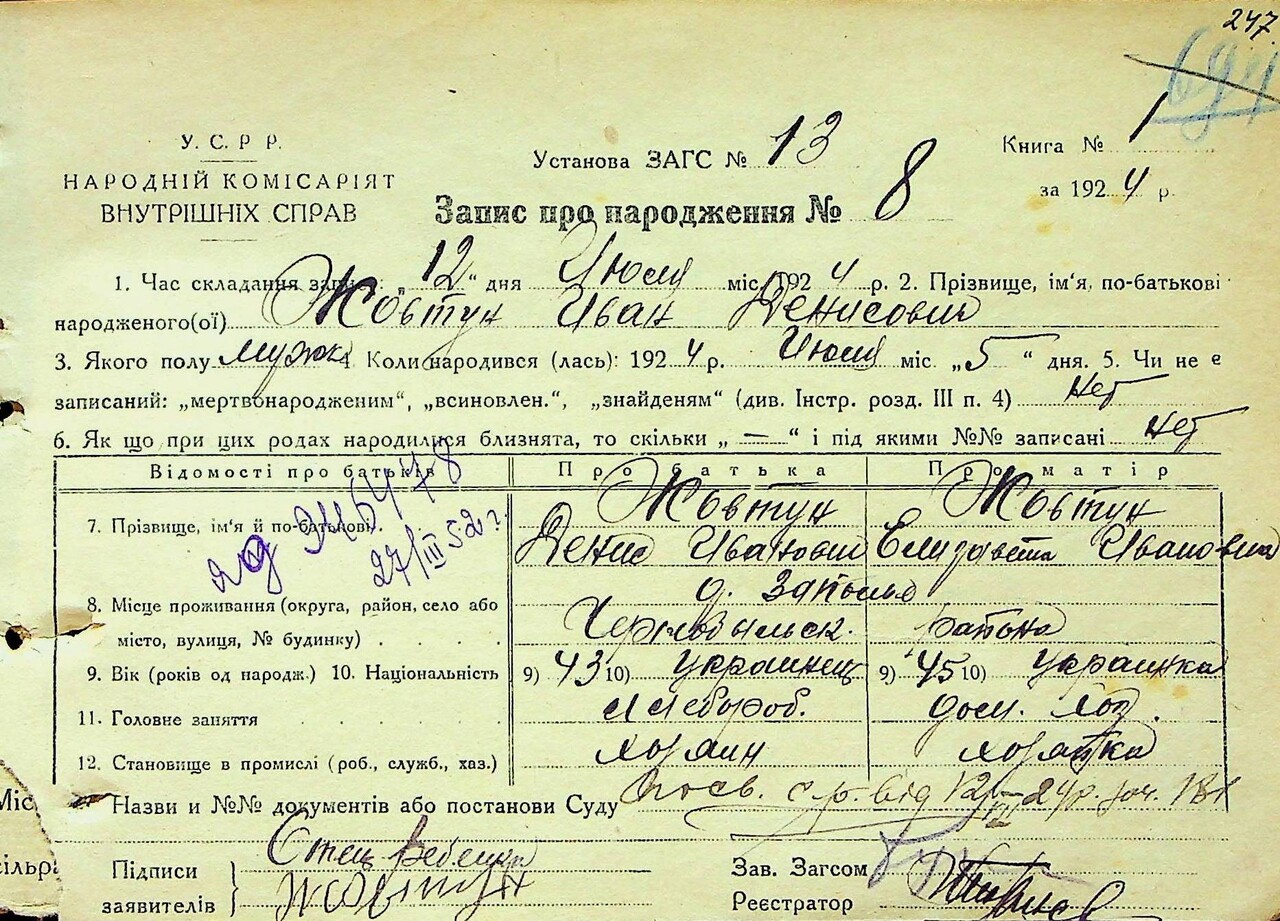 247.
691
У. С. Р Р.
НАРОДНІЙ КОМІСАРІЯТ
ВНУТРІШНІХ СПРАВ
Установа ЗАГС № 13
Книга № 1
за 1924 р.
Запис про народження № 8
1. Час складання запису: „12“ дня Июля міс. 1924 р. 2. Прізвище, ім'я, по-батькові
народженого(ої) Жовтун Иван Денисович
3. Якого полу мужс 4 Коли народився (лась): 1924 р. Июля міс. „5“ дня. 5. Чи не є
записаний: „мертвонародженим“, „всиновлен.“, „знайденям“ (див. Інстр. розд. III п. 4) нет
6. Як що при цих родах народилися близнята, то скільки „—“ і під якими №№ записані нет
Відомості про батьків Про батька Про матір
7. Прізвище, ім'я й по-батькові. Жовтун Жовтун
Денис Иванович Елизавета Ивановна
27/III 52 г.
8. Місце проживання (округа, район, село або
місто, вулиця, № будинку) д. Заполье
Чернобыльск. района
9. Вік (років од народж.) 10. Національність 9) 43 10) украинец 9) 45 10) украинка
11. Головне заняття хлебороб. дом. хоз.
12. Становище в промислі (роб., служб., хаз.) хозяин хозяйка
Назви и №№ документів або постанови Суду Посв. с/р. від 12/VII-24р. за ч. 131
Міс
сільра
Підписи
заявителів
Отец ребенка
Жовтун
Зав. Загсом
Реєстратор